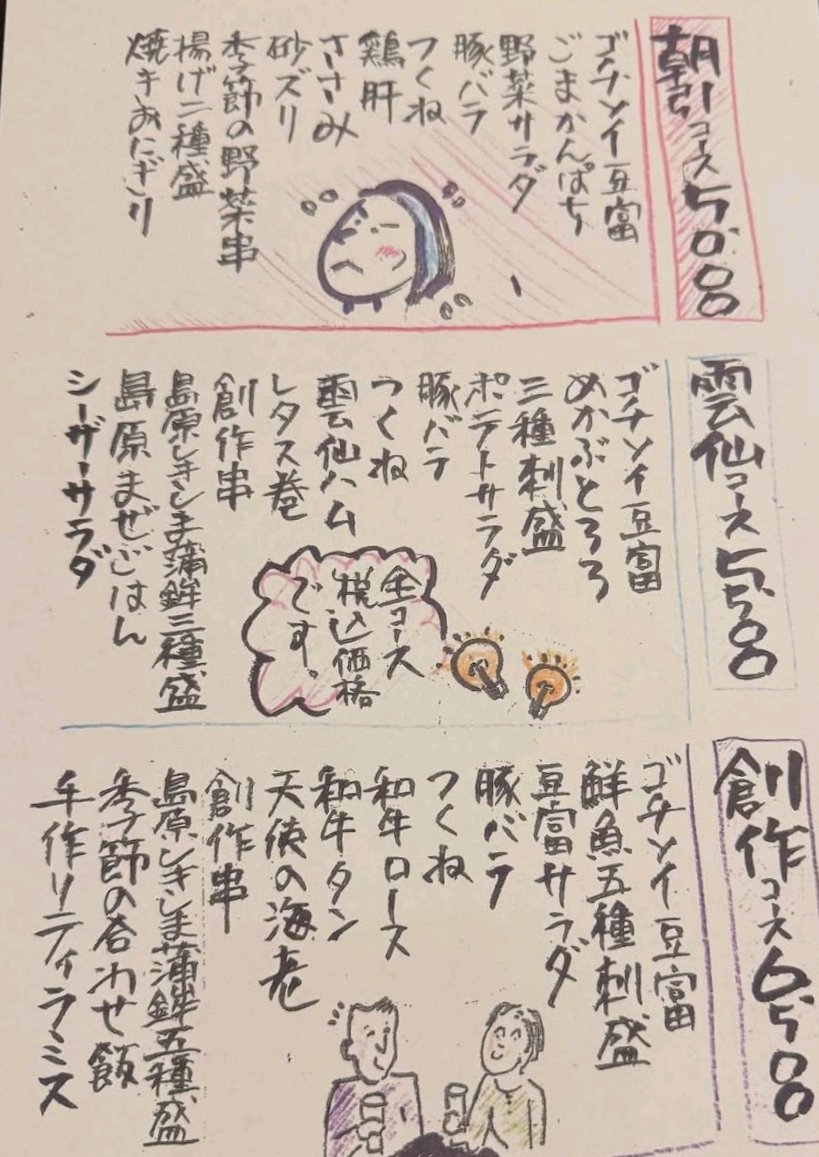 朝引コース5500
ゴチソイ豆富
ごまかんぱち
野菜サラダ
豚バラ
つくね
鶏肝
ささみ
砂ズリ
季節の野菜串
揚げ二種盛
焼きおにぎり
雲仙コース5500
ゴチソイ豆富
めかぶとろろ
三種刺盛
ポテトサラダ
豚バラ
つくね
雲仙ハム
レタス巻
創作串
島原しきしま蒲鉾三種盛
島原まぜごはん
シーザーサラダ
全コース
税込価格
です。
創作コース6500
ゴチソイ豆富
鮮魚五種刺盛
豆富サラダ
豚バラ
つくね
和牛ロース
和牛タン
天使の海老
創作串
島原しきしま蒲鉾五種盛
季節の合わせ飯
手作りティラミス